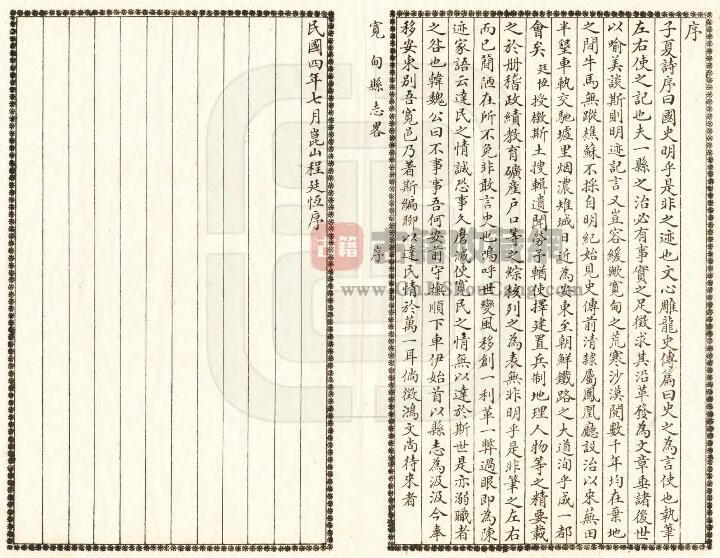 序
子夏詩序曰國史明乎是非之迹也文心雕龍史傳篇曰史之為言使也執筆
左右使之記也夫一縣之治必有事實之足徵求其沿革發為文章垂諸後世
以喻美談斯則明迹記言又豈容緩歟寬甸之荒寒沙漠閱數千年均在棄地
之間牛馬無蹤樵蘇不採自明紀始見史傳前清隸屬鳳凰廳設治以來蕪田
半墾車軌交馳墟里烟濃雉城日近為安東至朝鮮鐵路之大道洵乎成一都
會矣廷恆授檄斯土搜輯遺聞勞予輶使擇建置兵制地理人物等之精要載
之於册稽政績教育礦產戶口等之綜核列之為表無非明乎是非筆之左右
而已簡陋在所不免非敢言史也嗚呼世變風移創一利革一弊過眼即為陳
迹家語云達民之情誠恐事久磨滅使寬民之情無以達於斯世是亦溺職者
之咎也韓魏公曰不事事吾何安前守撫順下車伊始首以縣志為汲汲今奉
移安東別吾寬邑乃著斯編聊以達民情於萬一耳倘徵鴻文尚待來者
寬甸縣志畧 序
民國四年七月崑山程廷恆序
古籍
www.GuJiShouCang.com